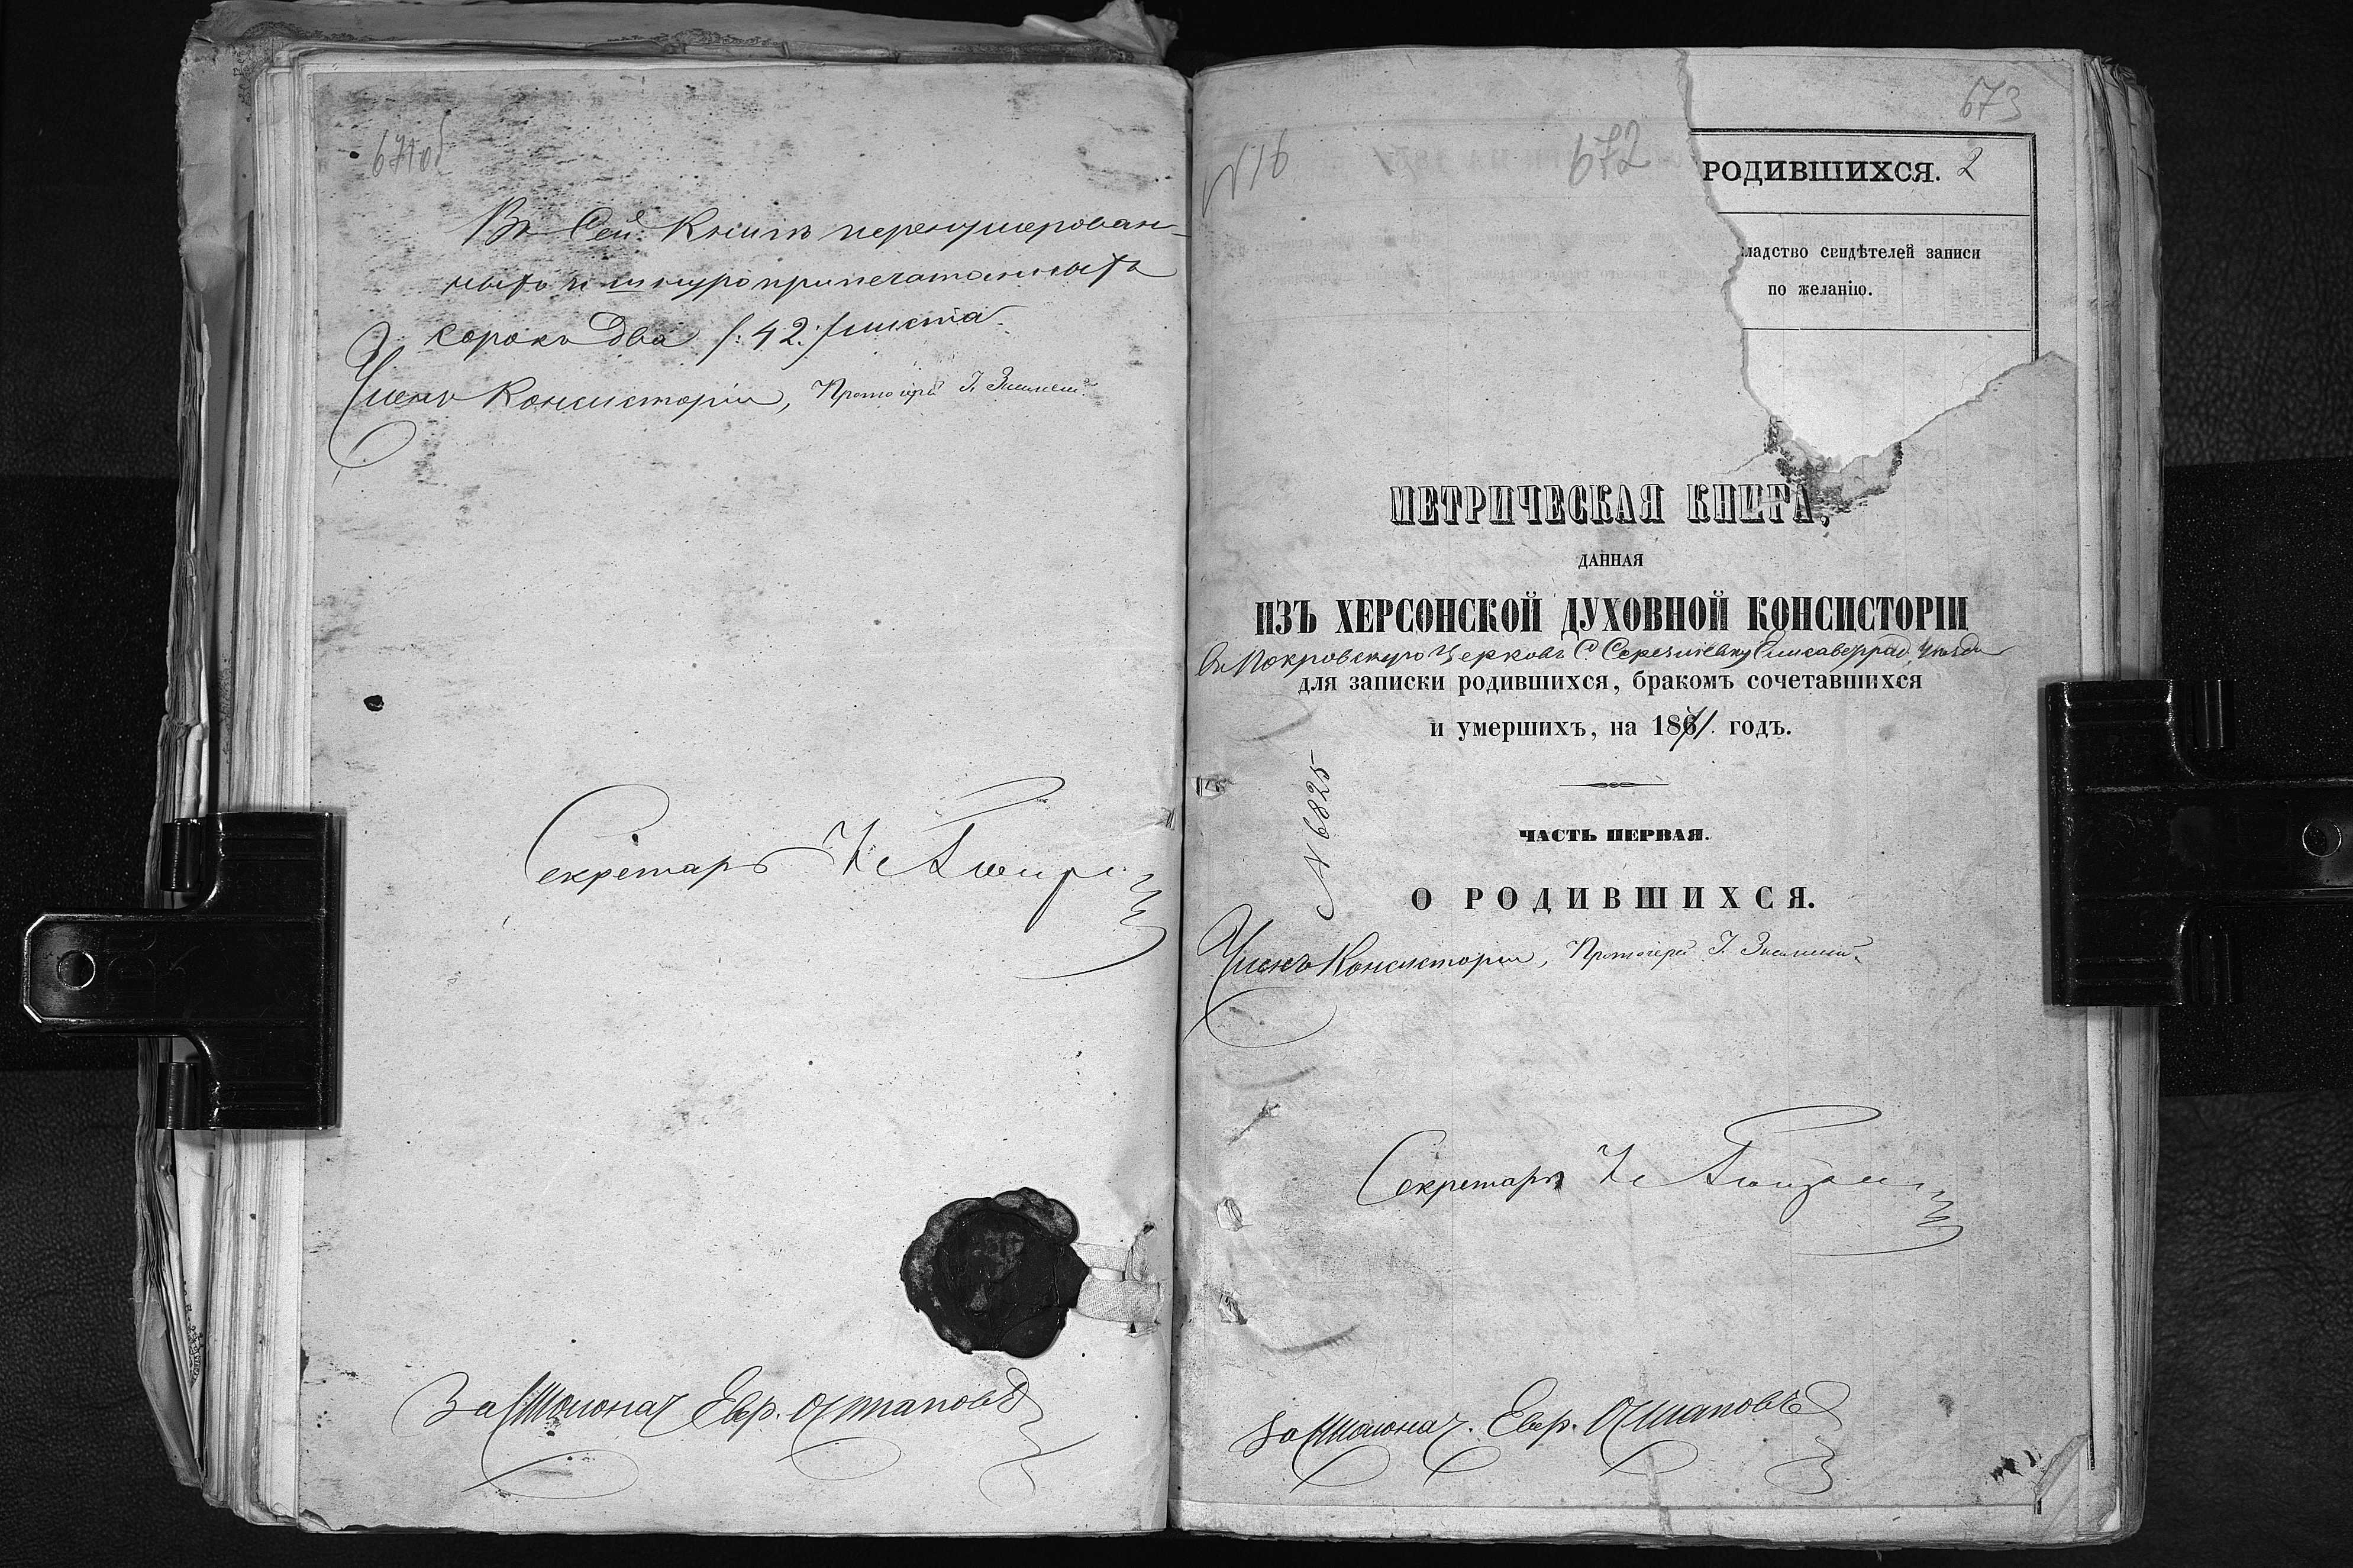 671об
Въ Сей Книгѣ перенумерован-
ныхъ и шнуроприпечатанныхъ
сорокъ два /: 42 :/ листа.
Членъ Консисторіи, Протоіерей І.
Секретарь
За Столонач Евр. Остаповъ
N 16
672
673
РОДИВШИХСЯ. 2
свидѣтелей записи
по желанію.
МЕТРИЧЕСКАЯ КНИГА,
ДАННАЯ
ИЗЪ ХЕРСОНСКОЙ ДУХОВНОЙ КОНСИСТОРІИ
въ Покровскую Церковь С. Елисаветград. уѣзда
для записки родившихся, бракомъ сочетавшихся
и умершихъ, на 1871. годъ.
N 6825
ЧАСТЬ ПЕРВАЯ.
О РОДИВШИХСЯ.
Членъ Консисторіи, Протоіерей І.
Секретарь
За Столонач. Евр. Остаповъ